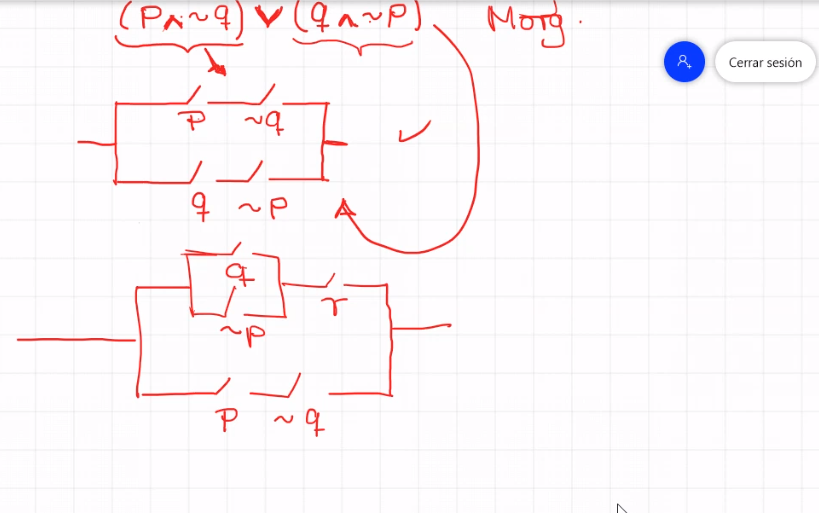 (p∧~q) ∨ (q∧~p) Morg.
Cerrar sesión
p ~q
q ~p
q
r
~p
p ~q